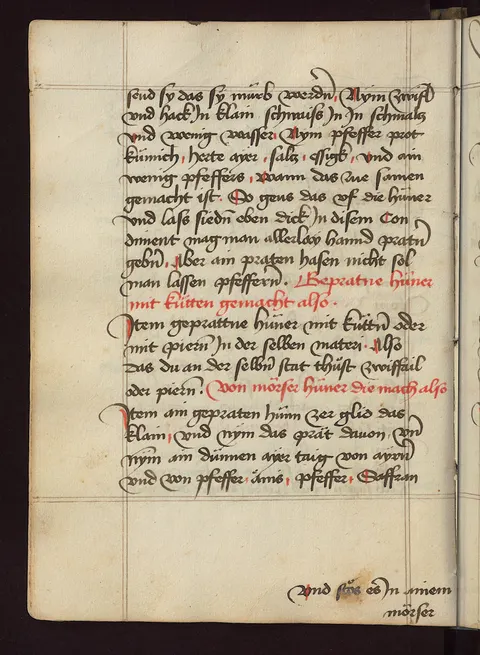 send sy das sy mürb werdn̄, Nym zwifl
vnd hack In klain schwaiss In In schmaltz
vnd wenig wasser, Nym pfeffer prot
kümich, herte ayer, saltz, essigk, vnd ain
wenig pfeffers, wann das zue samen
gemacht ist. So geus das vf die hüner
vnd lass siedn̄ eben dick In disem Con
diment mag man allerlay hannd pratn̄
gebn̄, Aber ain praten hasen nicht sol
man lassen pfeffern̄. Gepratne hüner
mit kütten gemacht also.
Item geprattne hüner mit küttn̄ oder
mit piern̄ In der selben materi. Also
das du an der selbn̄ stat thüst zwiffal
oder piern̄. Von mörser hüner die mach also
Item ain gepraten hün zer glid das
klain, vnd nym das prät dauon, vn̄
nym ain dünnen ayer taig von ayrn̄
vnd von pfeffer, änis, pfeffer, Saffran
Vnd stos es In ainem
mörser